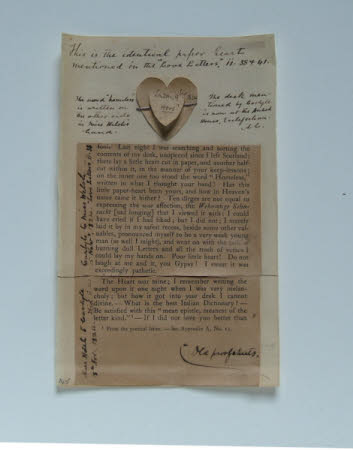 This is the identical paper heart
mentioned in the "Love Letters", II. 38 & 41.
The word "homeless"
is written on
the other side
in Miss Welsh's
hand.
The desk men-
tioned by Carlyle
is now at the
House, Ecclefechan
A.C.
last night I was searching and sorting the
contents of my desk, unopened since I left Scotland:
there lay a little heart cut in paper, and another half-
cut within it, in the manner of your keep-lessons;
on the inner one too stood the word "Homeless,"
written in what I thought your hand? Has this
little paper-heart been yours, and how in Heaven's
name came it hither? Ten dirges are not equal to
expressing the woe affection, the
[sad longing] that I viewed it with: I could
have cried if I had liked; but I did not; I merely
laid it by in my safest recess, beside some other val-
uables, pronounced myself to be a very weak young
man (as well I might), and went on with the task of
burning dull Letters and all the trash of verses I
could lay my hands on. Poor little heart! Do not
laugh at me and it, you Gypsy! I swear it was
exceedingly pathetic.
The Heart was mine; I remember writing the
word upon it one night when I was very melan-
choly; but how it got into your desk I cannot
divine. — What is the best Italian Dictionary? —
Be satisfied with this "mean epistle, meanest of the
lot," — If I did not love you better than
¹ From the poetical letter. — See Appendix A, No. 11.
Old proofsheets.
Carlyle to Miss Welsh
Miss Welsh to Carlyle